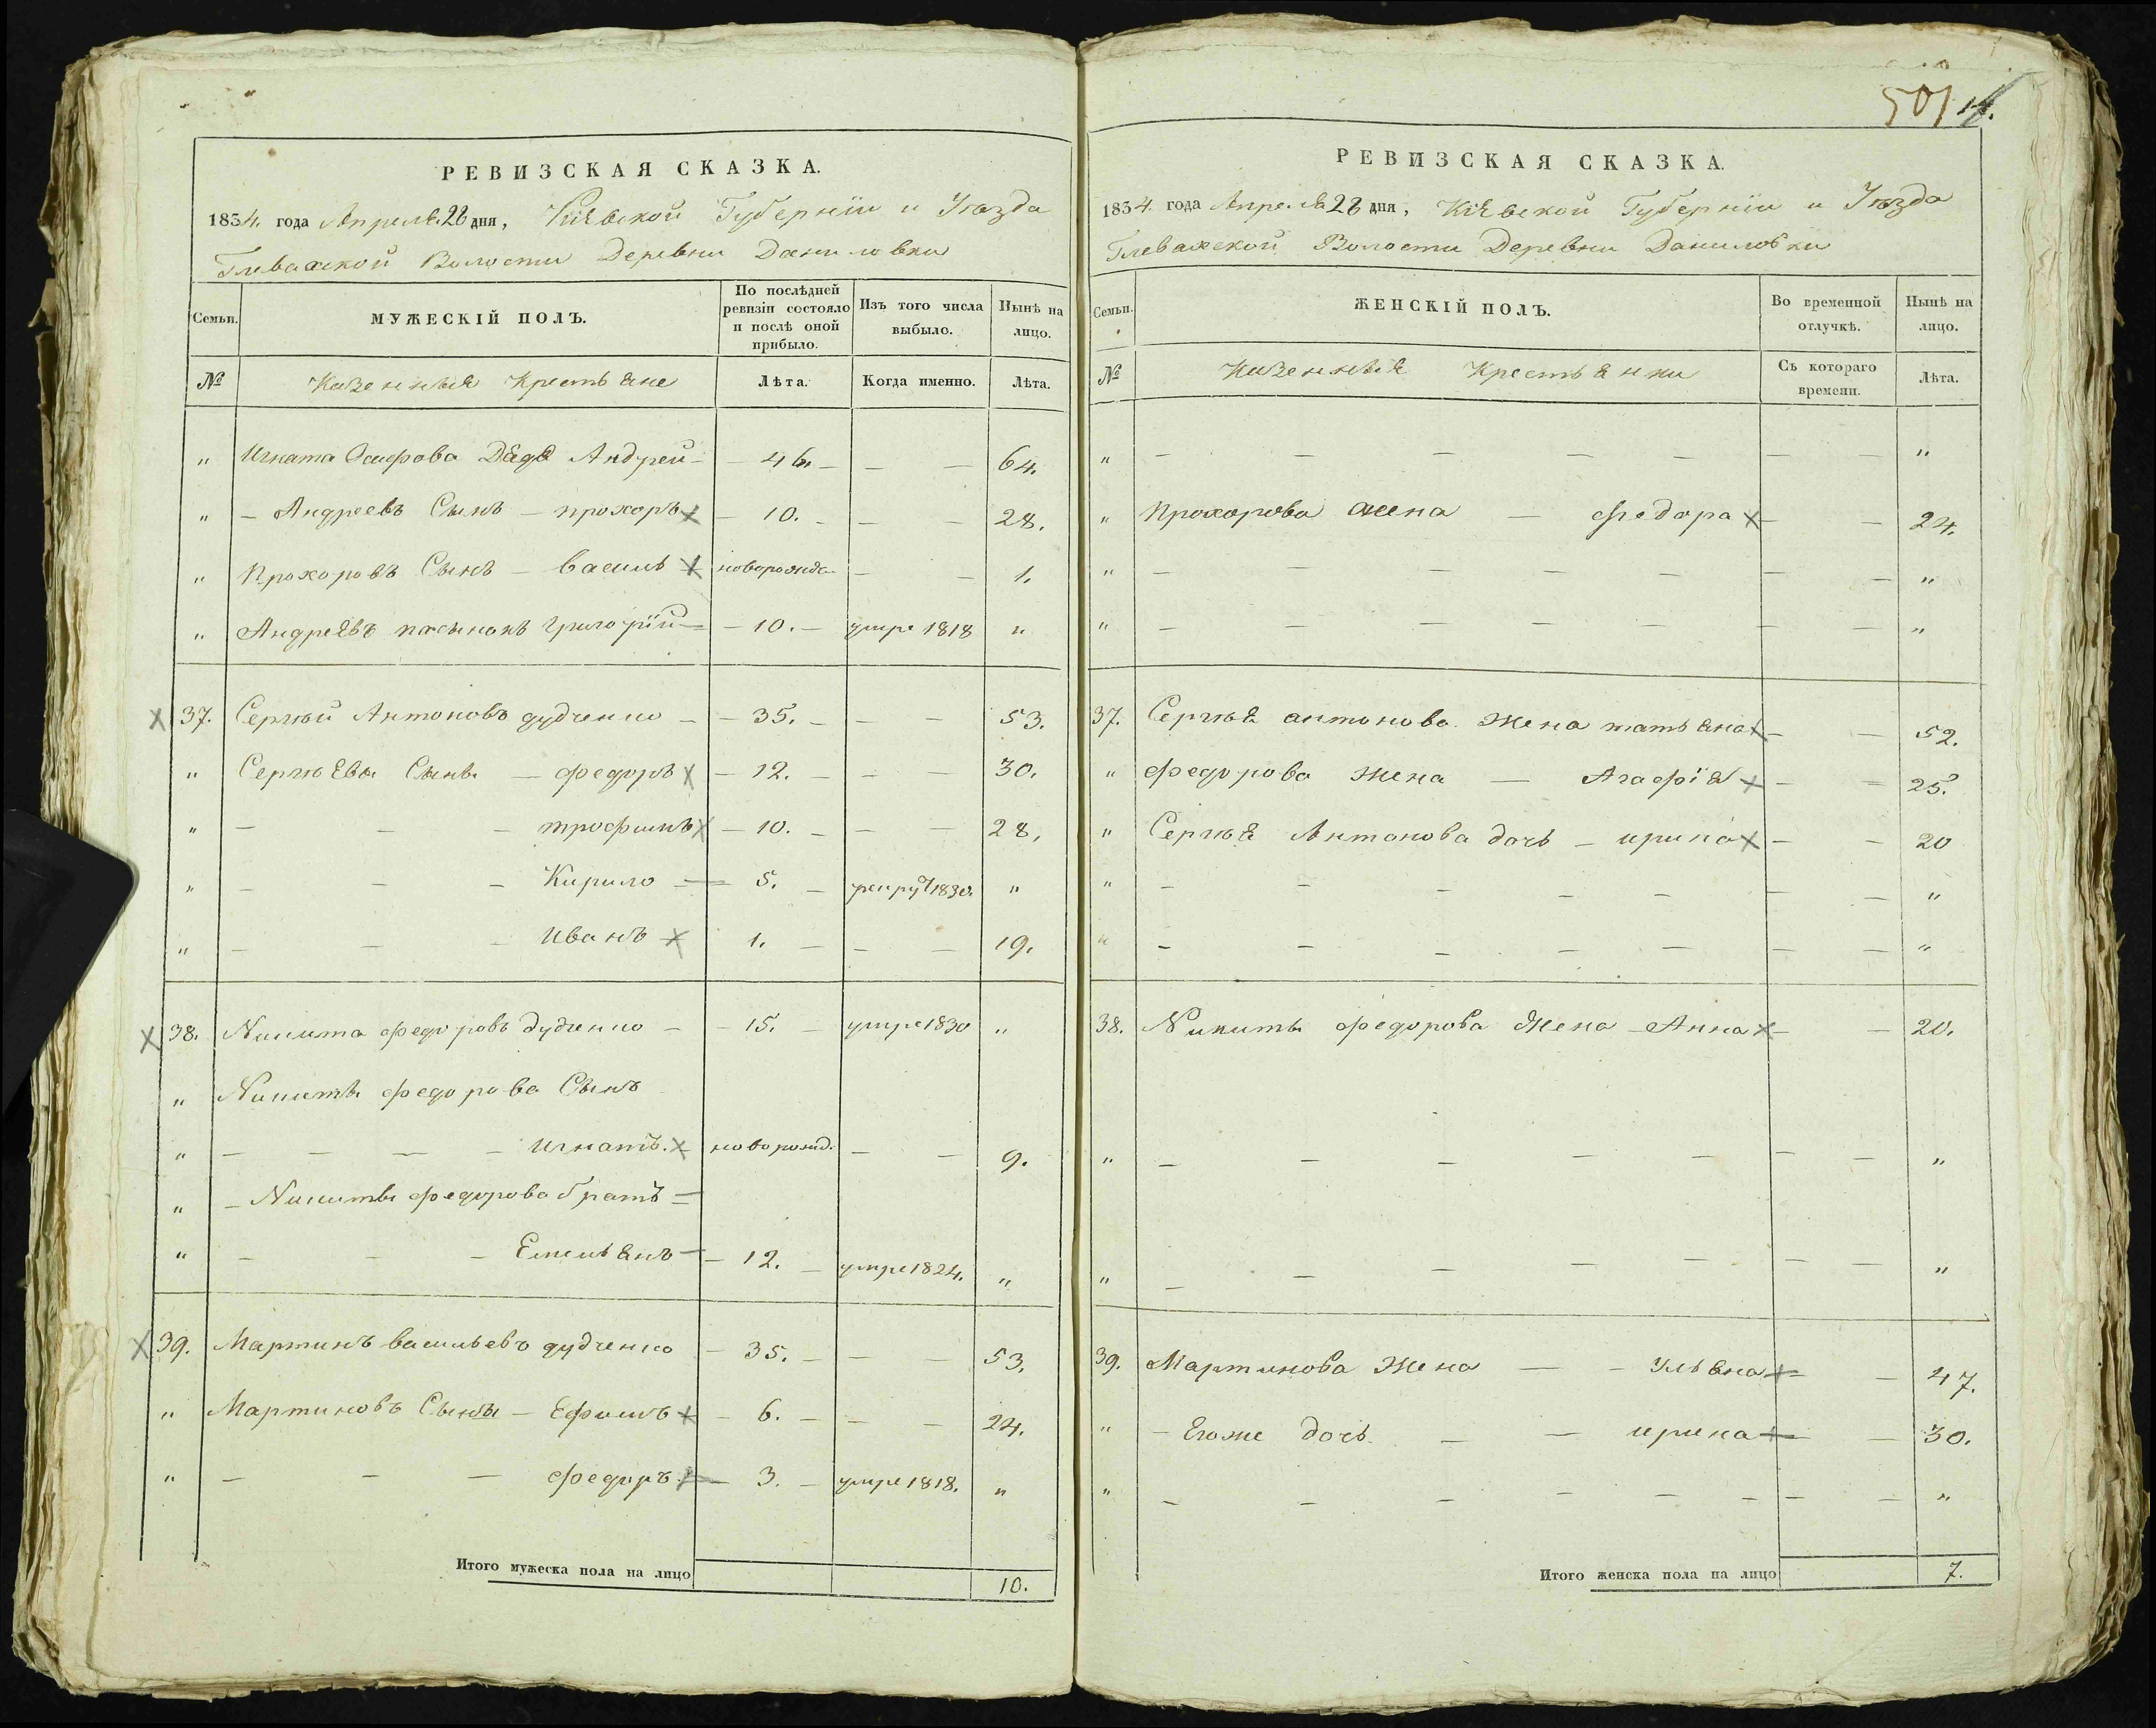 РЕВИЗСКАЯ СКАЗКА.
1834. года Апреля 28 дня, Кіевской Губерніи и Уѣзда
Глевахской Волости Деревни Даниловки
Семьи. МУЖЕСКІЙ ПОЛЪ. По послѣдней ревизіи состояло и послѣ оной прибыло. Изъ того числа выбыло. Нынѣ на лицо.
№ Казенныя Крестьяне Лѣта. Когда именно. Лѣта.
" Игната Осифова Дядя Андрей - - 46. - - - 64.
" - Андреевъ Сынъ - прохоръ х - 10. - - - 28.
" Прохоровъ Сынъ - василь х новорожде. - - 1.
" Андреевъ пасынокъ григорій - - 10. - умре 1818 "
х 37. Сергѣй Антоновъ дудченко - - 35. - - - 53.
" Сергѣевы Сыны - федоръ х - 12. - - - 30.
" - - - трофимъ х - 10. - - - 28.
" - - - Кирило - - 5. - рекрут 1830. "
" - - - Иванъ х 1. - - - 19.
х 38. Никита федоровъ дудченко - - 15. - умре 1830 "
" Никиты федорова Сынъ
" - - - - игнатъ. х новорожд. - - 9.
" - Никиты федорова братъ -
" - - - Емельянъ - - 12. - умре 1824. "
х 39. Мартинъ васильевъ дудченко - 35. - - - 53.
" Мартиновъ Сыны - Ефимъ х - 6. - - - 24.
" - - - федоръ. х - 3. - умре 1818. "
Итого мужеска пола на лицо 10.
501
РЕВИЗСКАЯ СКАЗКА.
1834. года Апреля 28 дня, Кіевской Губерніи и Уѣзда
Глевахской Волости Деревни Даниловки
Семьи. ЖЕНСКІЙ ПОЛЪ. Во временной отлучкѣ. Нынѣ на лицо.
№ Казенныя Крестьянки Съ котораго времени. Лѣта.
" - - - - - - - "
" Прохорова жена - федора х - - 24.
" - - - - - - - "
" - - - - - - - "
37. Сергѣя антонова жена татьяна х - - 52.
" федорова жена - Агафія х - - 25.
" Сергѣя Антонова дочь - ирина х - - 20
" - - - - - - - "
" - - - - - - - "
38. Никиты федорова Жена - Анна х - - 20.
" - - - - - - - "
" - - - - - - - "
39. Мартинова Жена - - Ульяна х - - 47.
" - Егоже дочь - - ирина х - - 30.
" - - - - - - - - "
Итого женска пола на лицо 7.